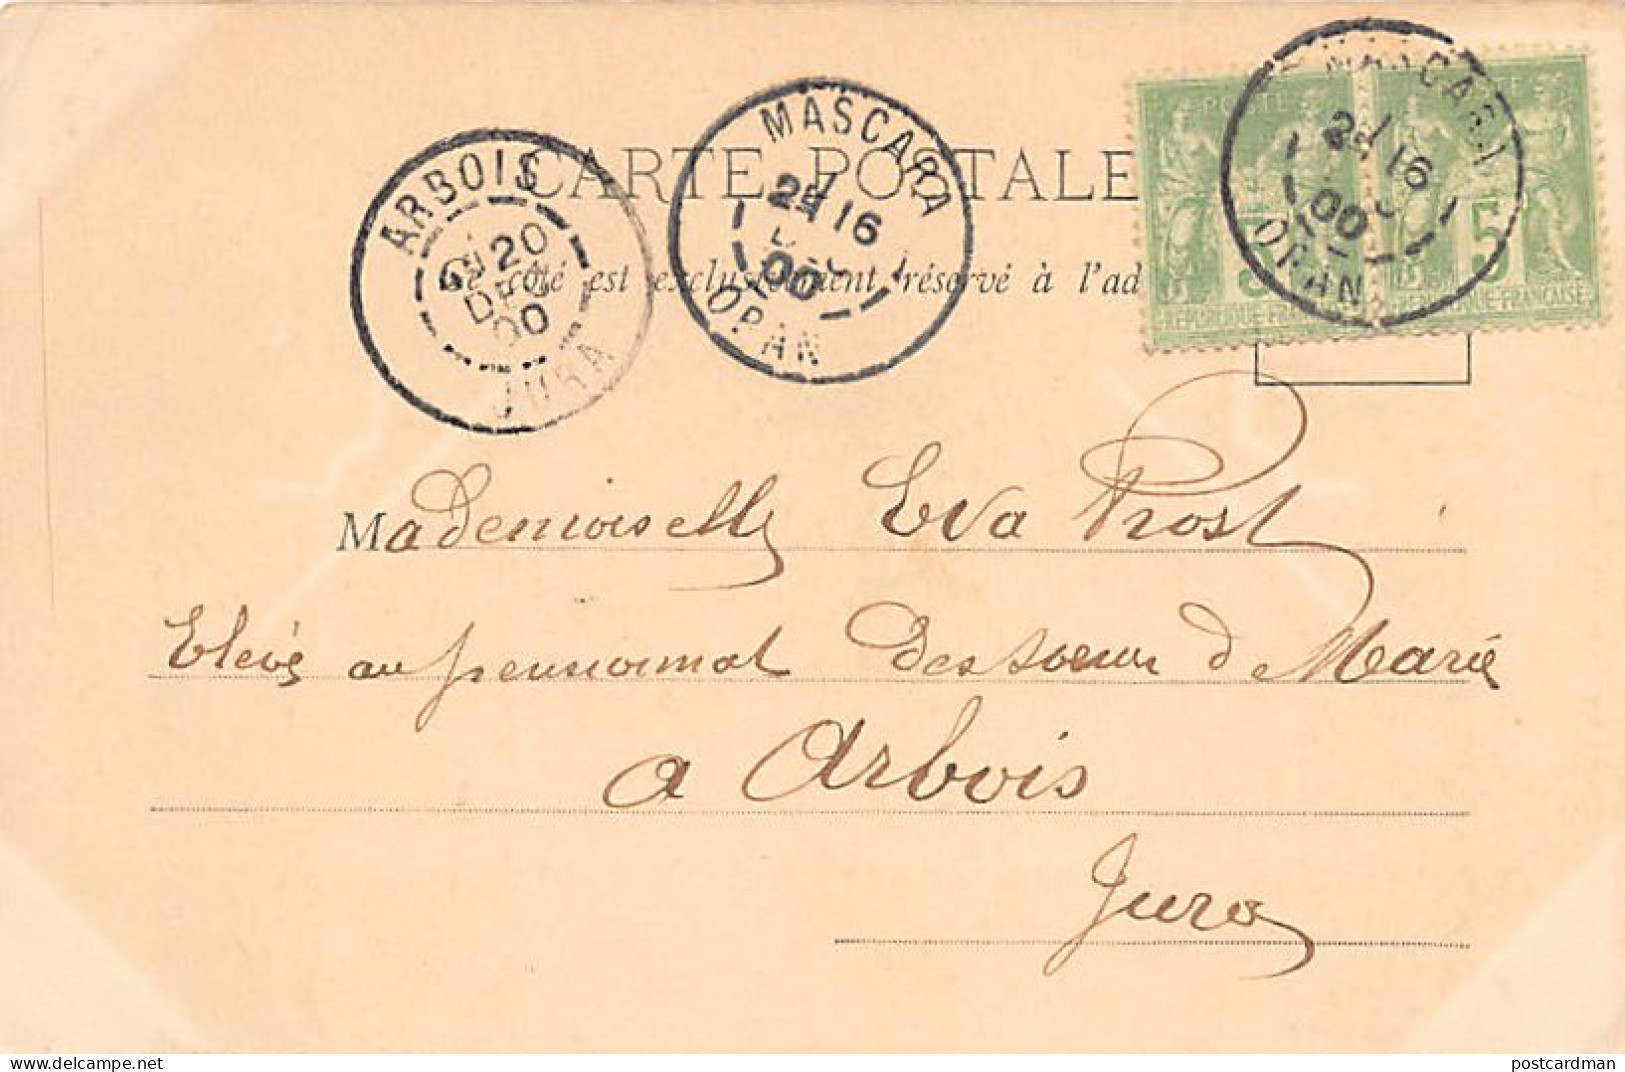 CARTE POSTALE
Ce côté est exclusivement réservé à l'ad
ARBOIS
20
DEC
00
JURA
MASCARA
16
00
ORAN
MASCARA
16
00
ORAN
POSTE
5
REPUBLIQUE FRANÇAISE
Mademoiselle Eva Prost
Elevé au pensionnat des soeurs de Marie
a Arbois
Jura
postcardman